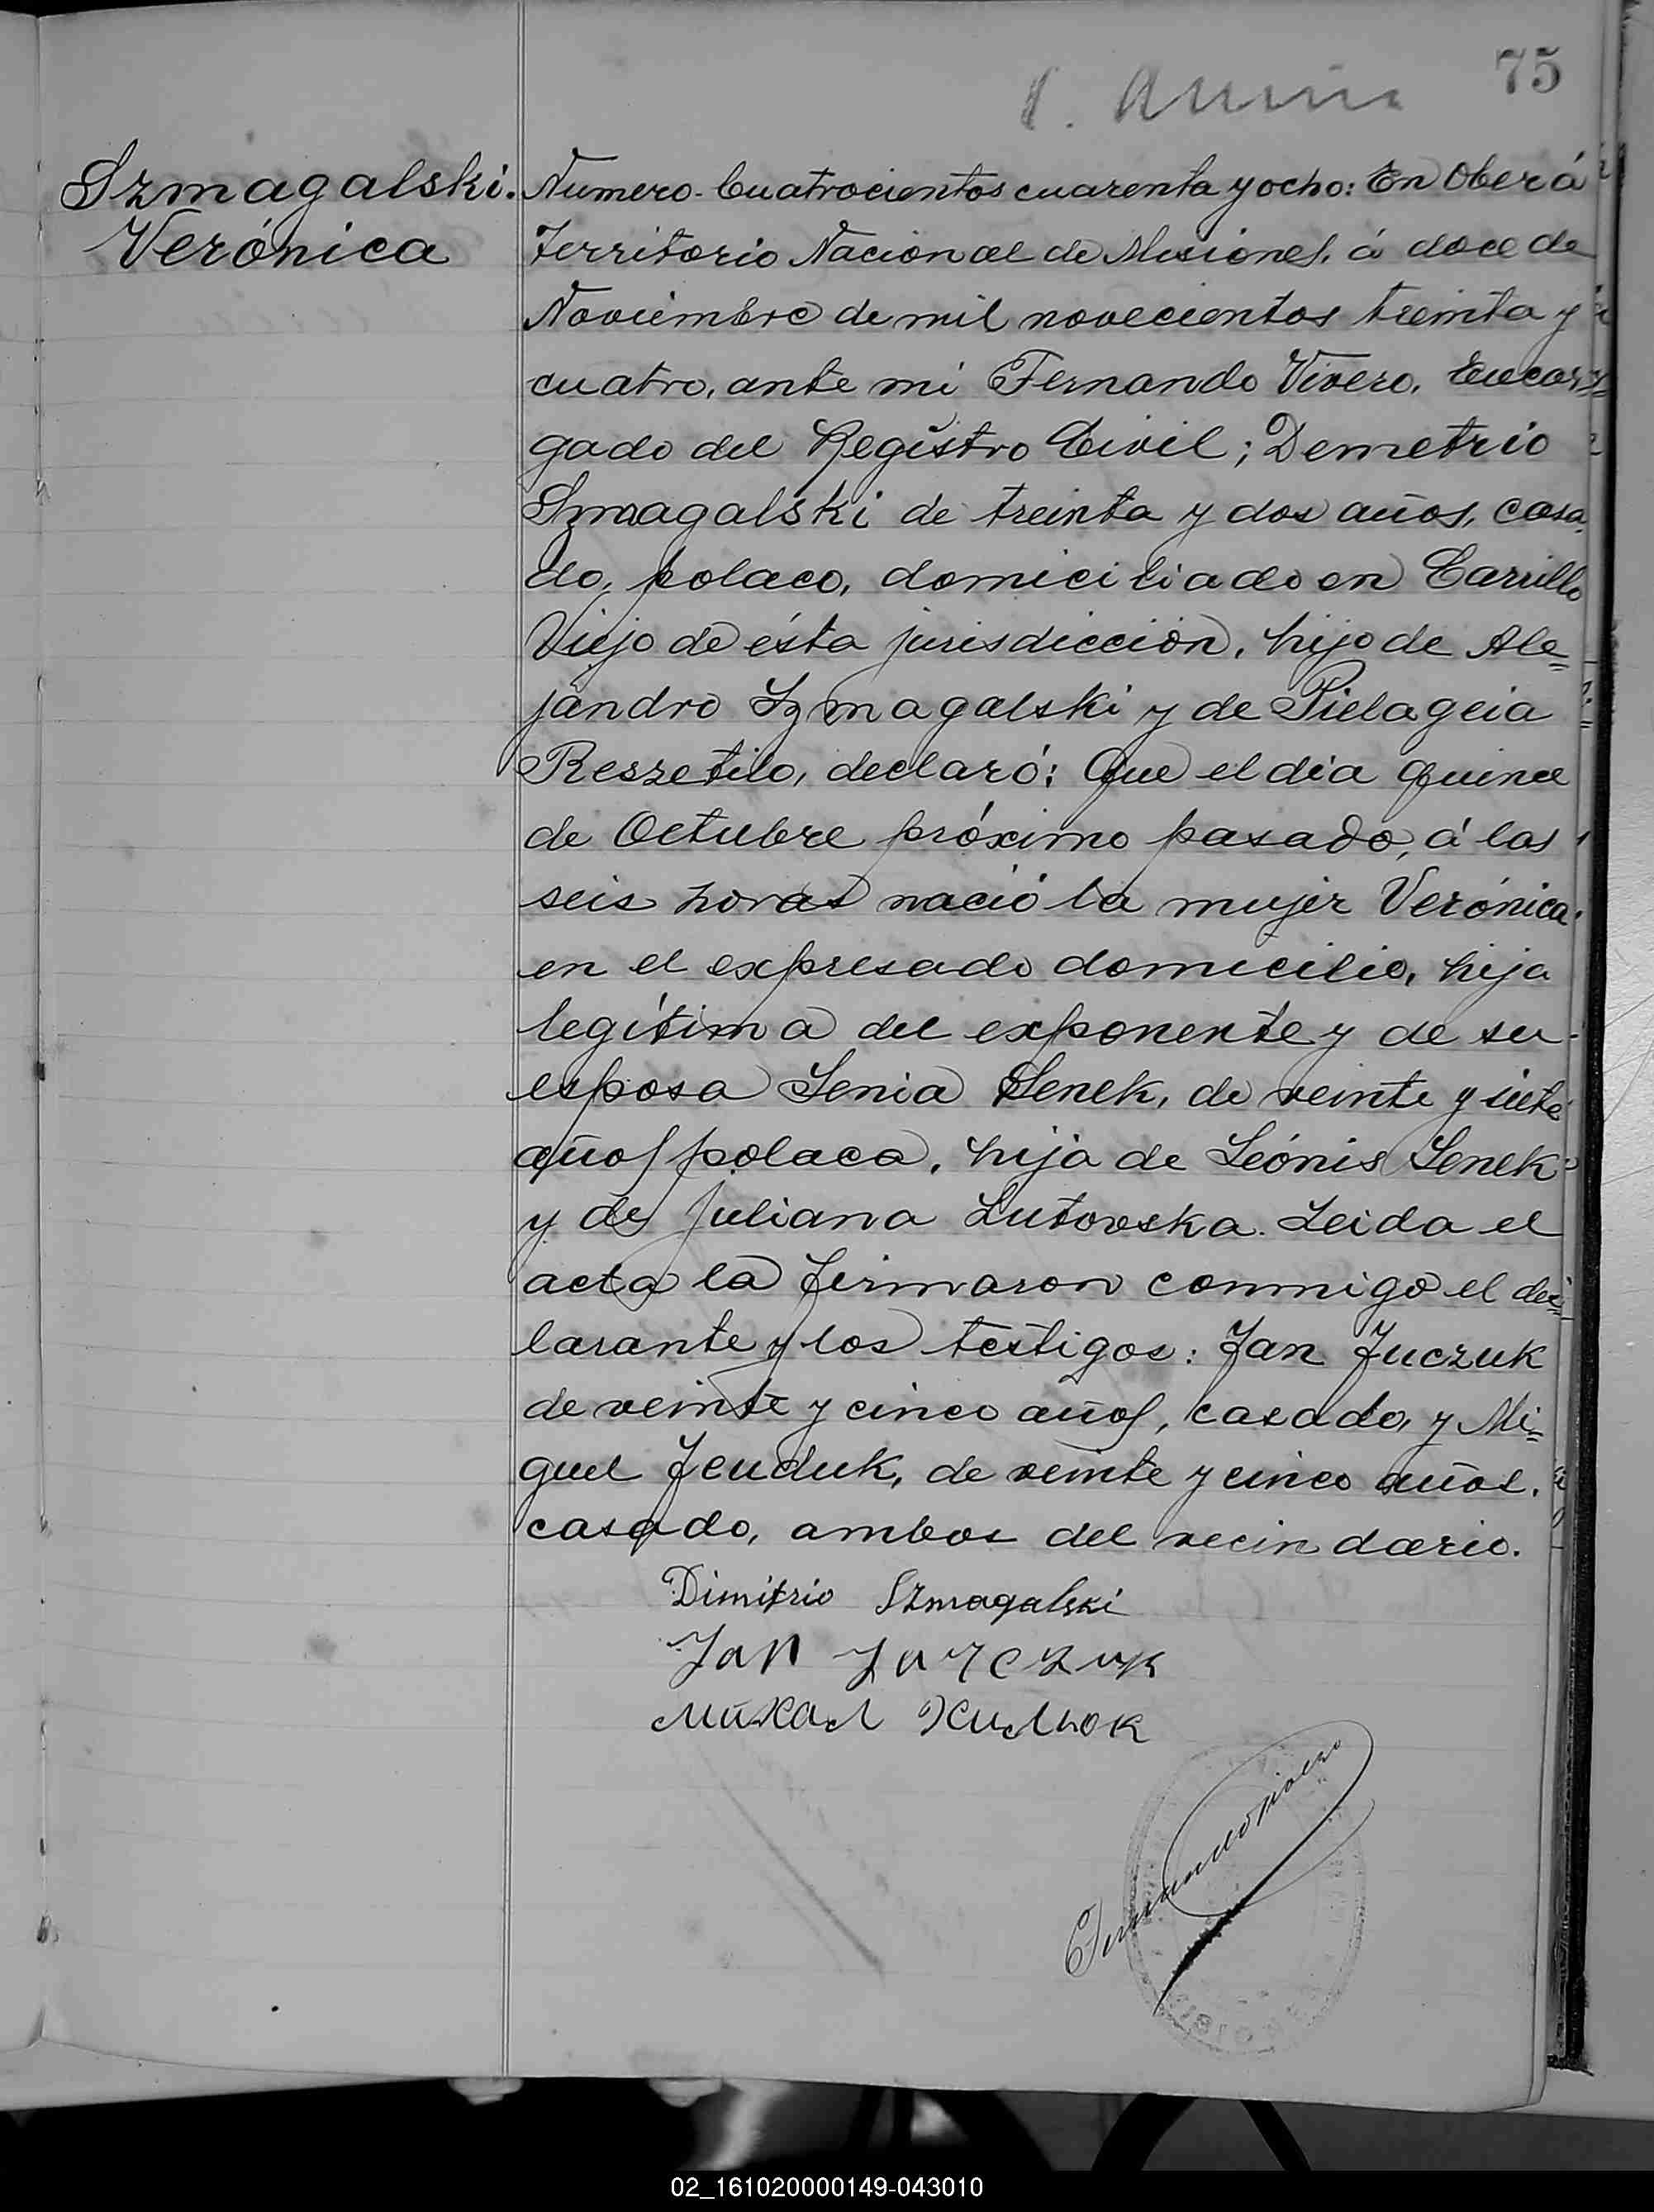 75
Szmagalski.
Verónica
Numero Cuatrocientos cuarenta y ocho: En Oberá
Territorio Nacional de Misiones, á doce de
Noviembre de mil novecientos treinta y
cuatro, ante mi Fernando Vivero, Encar=
gado del Registro Civil; Demetrio
Szmagalski de treinta y dos años, casa
do, polaco, domiciliado en Carrillo
Viejo de ésta jurisdicción, hijo de Ale=
jandro Szmagalski y de Pielageia
Reszetilo, declaró: Que el dia quince
de Octubre próximo pasado, á las
seis horas nació la mujer Verónica
en el expresado domicilio, hija
legítima del exponente y de su
esposa Senia Senek, de veinte y siete
años polaca, hija de Leónis Senek
y de Juliana Lutowska. Leida el
acta la firmaron conmigo el dec=
larante y los testigos: Jan Juczuk
de veinte y cinco años, casado, y Mi=
guel Jeuduk, de veinte y cinco años,
casado, ambos del vecindario.
Dimitrio Szmagalski
Jan
Fernando Vivero
MISIONES
02_161020000149-043010